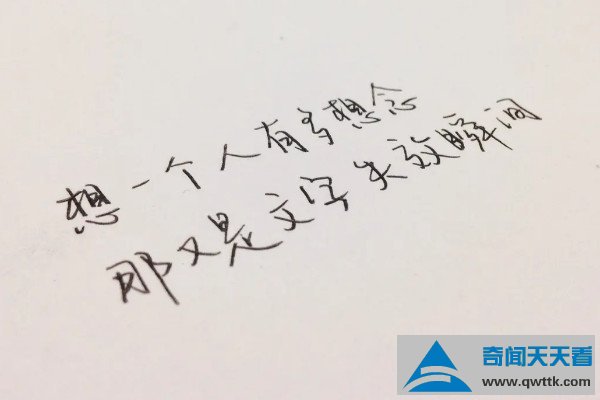 想一个人有多想念
那又是文字失效瞬间
奇闻天天看
www.qwttk.com